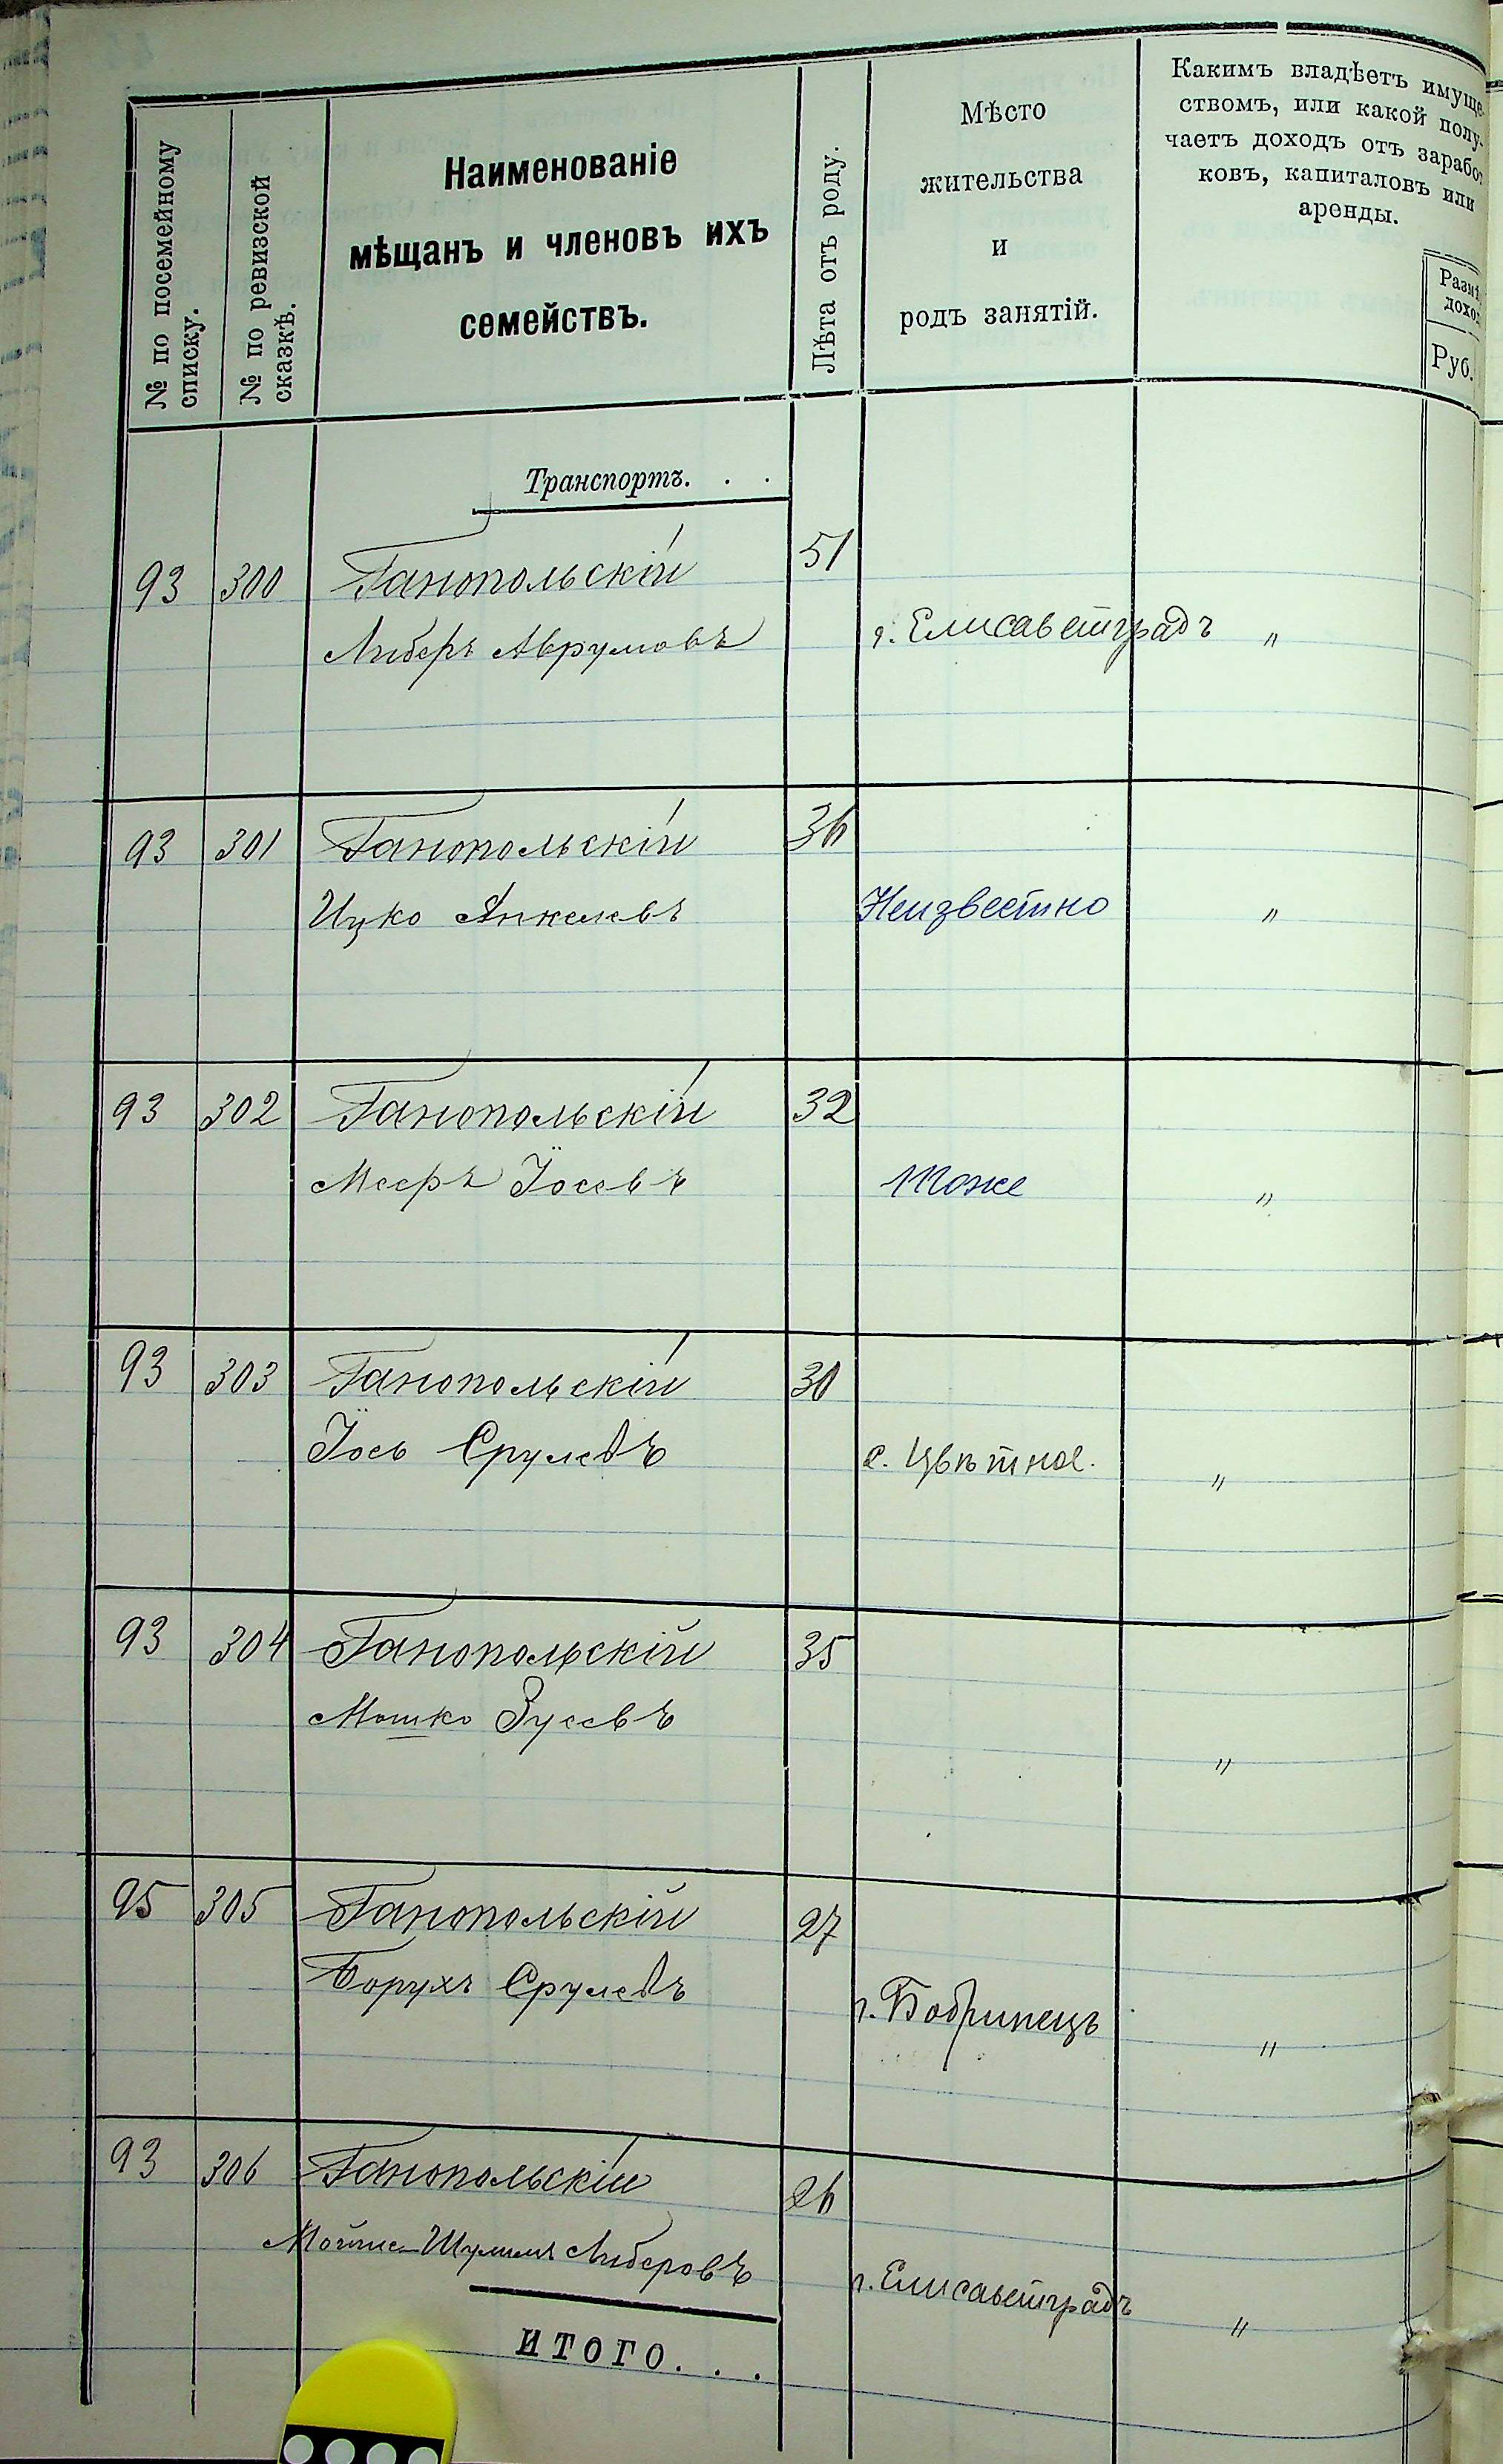 № по посемейному
списку.
№ по ревизской
сказкѣ.
Наименованіе
мѣщанъ и членовъ ихъ
семействъ.
Лѣта отъ роду.
Мѣсто
жительства
и
родъ занятій.
Какимъ владѣетъ имуще-
ствомъ, или какой полу-
чаетъ доходъ отъ заработ
ковъ, капиталовъ или
аренды.
Размѣ
доход
Руб.
Транспортъ. . .
93 300 Ганопольскій 51
Либеръ Аврумовъ г. Елисаветградъ "
93 301 Ганопольскій 36
Ицко Янкелевъ Неизвестно "
93 302 Ганопольскій 32
Мееръ Іосевъ Тоже "
93 303 Ганопольскій 30
Іось Срулевъ с. Цвѣтное. "
93 304 Ганопольскій 35
Мошко Зусевъ "
95 305 Ганопольскій 27
Борухъ Срулевъ г. Бобринецъ "
93 306 Ганопольскій 26
Мойше-Шулимъ Либеровъ г. Елисаветградъ "
ИТОГО. . .